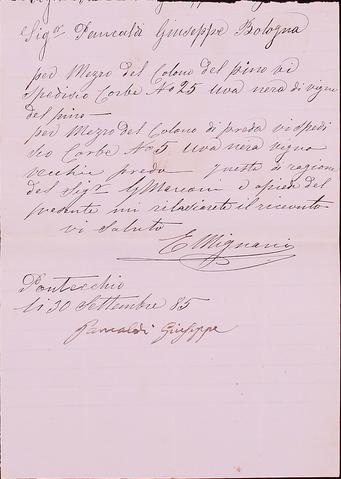 Sigr Pancaldi Giuseppe Bologna
per Mezzo del Colono del pino vi
spedisco Corbe No 25 Uva nera di vigne
del pino
per Mezzo del Colono di preda vi spedi
sco Corbe No 5 Uva nera vigna
vecchia preda queste di ragione
del Sigr G Marconi a piede del
presente mi rilasciarete il ricevuto
vi saluto
E Mignani
Pontecchio
li 30 Settembre 85
Pancaldi Giuseppe